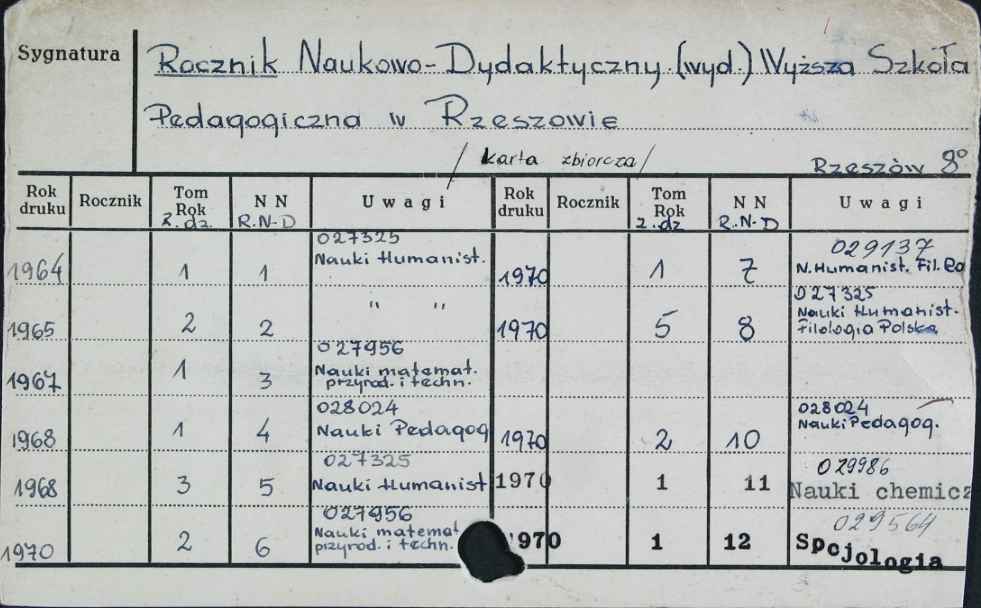 Sygnatura
Rocznik Naukowo-Dydaktyczny. (wyd.) Wyższa Szkoła
Pedagogiczna w Rzeszowie
/ karta zbiorcza /
Rzeszów 8°
Rok druku Rocznik Tom Rok z. dz. N N R.N-D Uwagi Rok druku Rocznik Tom Rok z. dz N N R.N-D Uwagi
027325 029137
1964 1 1 Nauki Humanist. 1970 1 7 N. Humanist. Fil. Po
027325
1965 2 2 " " 1970 5 8 Nauki Humanist.
Filologia Polska
027956
1967 1 3 Nauki matemat.
przyrod. i techn.
028024 028024
1968 1 4 Nauki Pedagog 1970 2 10 Nauki Pedagog.
027325 029986
1968 3 5 Nauki Humanist 1970 1 11 Nauki chemicz
027956 029564
1970 2 6 Nauki matemat 1970 1 12 Spcjologia
przyrod. i techn.